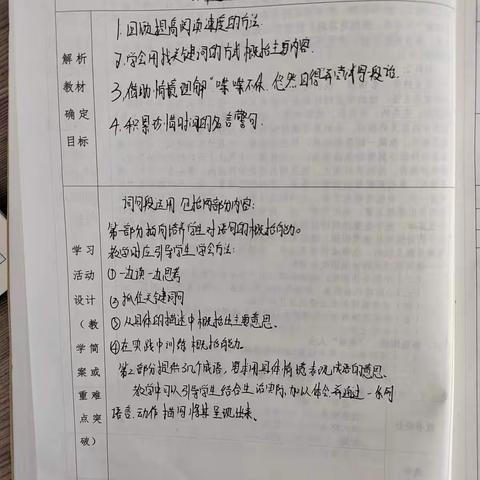 解析
教材
确定
目标
1.回顾提高阅读速度的方法.
2.学会用找关键词的方式概括主要内容.
3.借助情境理解"喋喋不休、悠然自得"并尝试写段话.
4.积累珍惜时间的名言警句.
学习
活动
设计
(教
学简
案或
重难
点突
破)
词句段运用 包括两部分内容:
第一部分指向培养学生对语句的概括能力。
教学时应引导学生学会方法:
①一边读一边思考
②抓住关键词句
③从具体的描述中概括出主要意思、
④在实践中训练概括能力.
第二部分提供几个成语,要求用具体情境表现成语的意思、
教学中可以引导学生结合生活实际,加以体会,再通过一系列
语言、动作描写将其呈现出来、